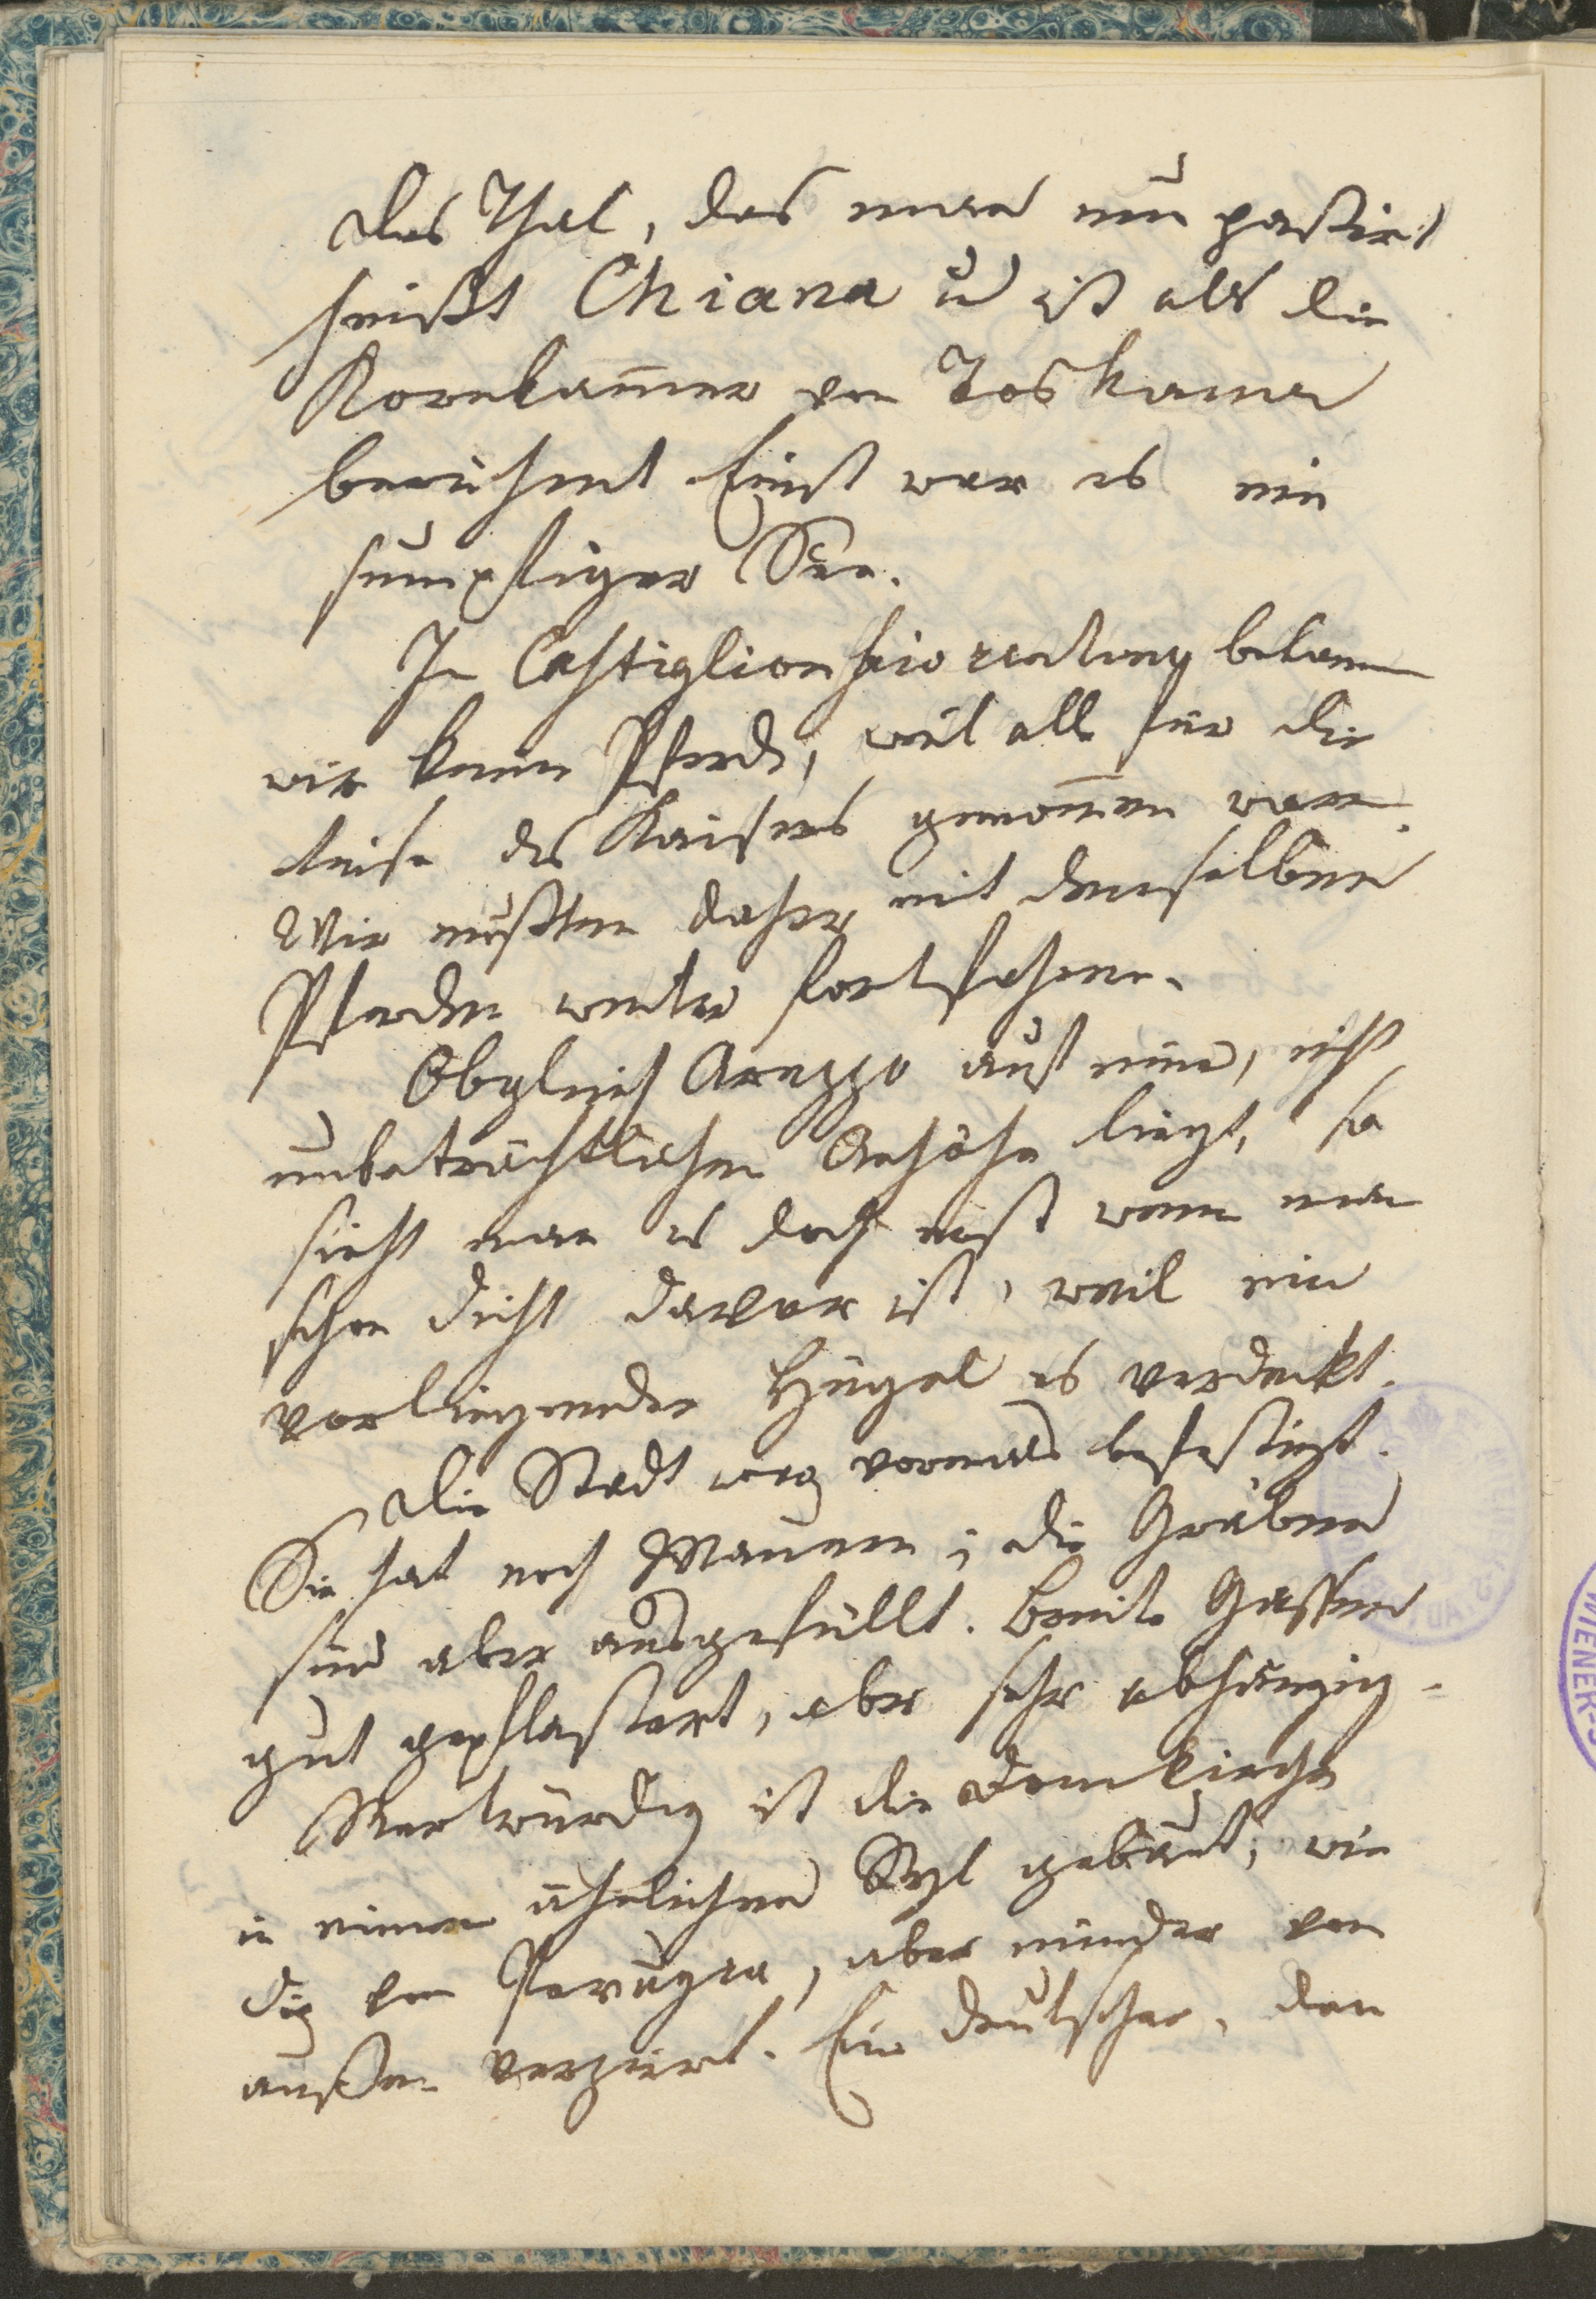 Das Thal, das man nun paßirt
heißt Chiana u ist als die
Kornkam̄er von Toskana
berühmt. Einst war es ein
sumpfiger See.
In Castiglion fiorentino bekamen
wir keine Pferde, weil alle für die
Reise des Kaisers genom̄en waren.
Wir mußten daher mit denselben
Pferden weiter fortfahren.
Obgleich Arezzo auf einer, nicht
unbeträchtlichen Anhöhe liegt, so
sieht man es doch erst wenn man
schon dicht davor ist, weil ein
vorliegender Hügel es verdeckt.
Die Stadt war vormals befestigt.
Sie hat noch Mauern; die Gräben
sind aber ausgefüllt. Breite Gassen
gut gepflastert, aber sehr abhängig.
Merkwürdig ist die Domkirche
in einem ähnlichen Styl gebaut, wie
die von Perugia, aber minder von
außen verziert. Ein Deutscher, den
WIENER-S